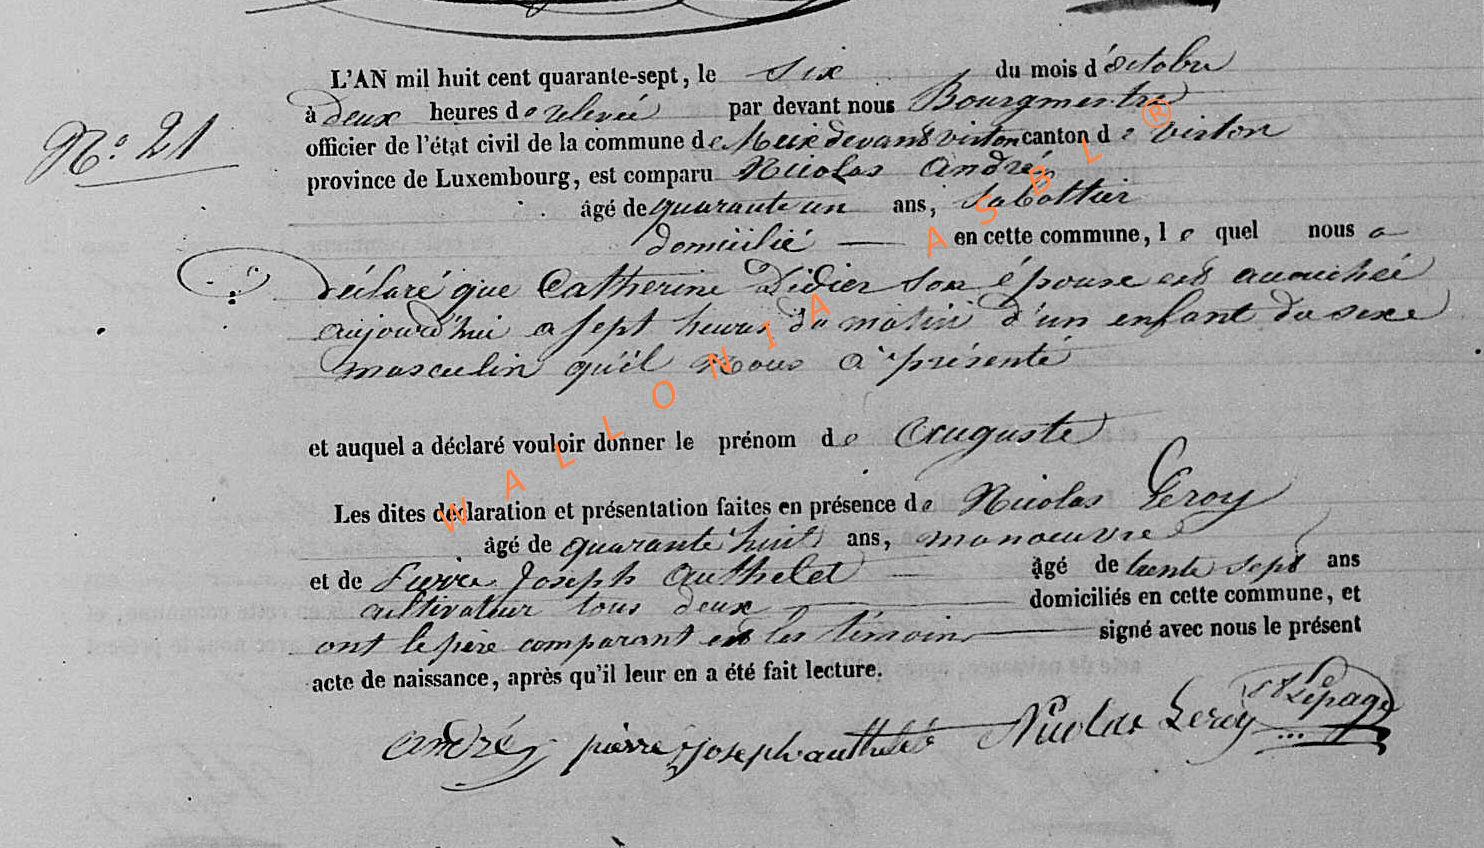 L'AN mil huit cent quarante-sept, le six du mois d'octobre
à deux heures de relevée par devant nous Bourgmestre
N° 21
officier de l'état civil de la commune de Meix devant virton canton de virton
province de Luxembourg, est comparu Nicolas andré
âgé de quarante un ans, Sabottier
domicilié en cette commune, le quel nous a
déclaré que Catherine Didier son épouse est accouchée
aujourd'hui a sept heures du matin d'un enfant du sexe
masculin qu'il nous a présenté
et auquel a déclaré vouloir donner le prénom de auguste
Les dites déclaration et présentation faites en présence de Nicolas Leroy
âgé de quarante huit ans, manoeuvre
et de pierre Joseph authelet âgé de trente sept ans
cultivateur tous deux domiciliés en cette commune, et
ont le père comparant et les témoins signé avec nous le présent
acte de naissance, après qu'il leur en a été fait lecture.
andré pierre joseph authelet Nicolas Leroy Lépage
WALLONIA ASBL ®